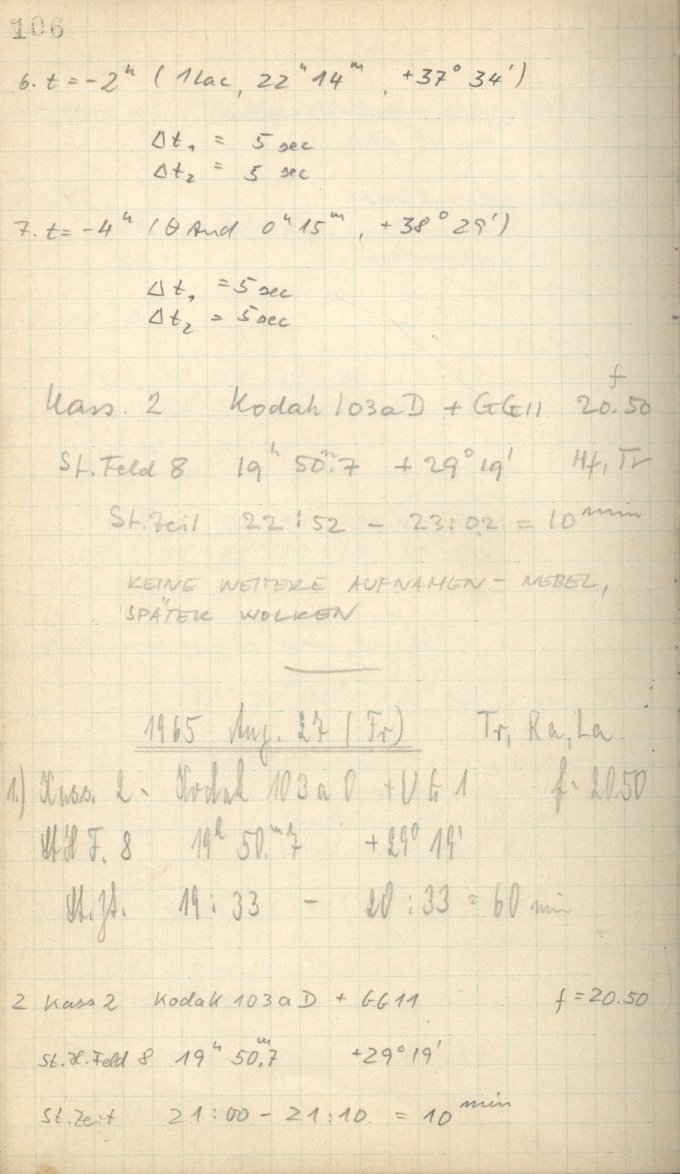 106
6. t = -2ʰ ( 1 Lac, 22ʰ 14ᵐ, +37° 34')
Δt₁ = 5 sec
Δt₂ = 5 sec
7. t = -4ʰ (θ And 0ʰ 15ᵐ, +38° 29')
Δt₁ = 5 sec
Δt₂ = 5 sec
f
Kass. 2 Kodak 103aD + GG11 20.50
St. Feld 8 19ʰ 50ᵐ.7 + 29° 19' Hf, Tr
St. Zeit 22:52 - 23:02 = 10 min
KEINE WEITERE AUFNAMEN - NEBEL,
SPÄTER WOLKEN
1965 Aug. 27 (Fr) Tr, Ra, La
1.) Kass. 2 - Kodak 103a O + UG 1 f = 20.50
St H F. 8 19ʰ 50.ᵐ7 +29° 19'
St. Zt. 19:33 - 20:33 = 60 min
2 Kass 2 Kodak 103aD + GG11 f = 20.50
St. H. Feld 8 19ʰ 50ᵐ.7 +29° 19'
St. Zeit 21:00 - 21:10 = 10 min